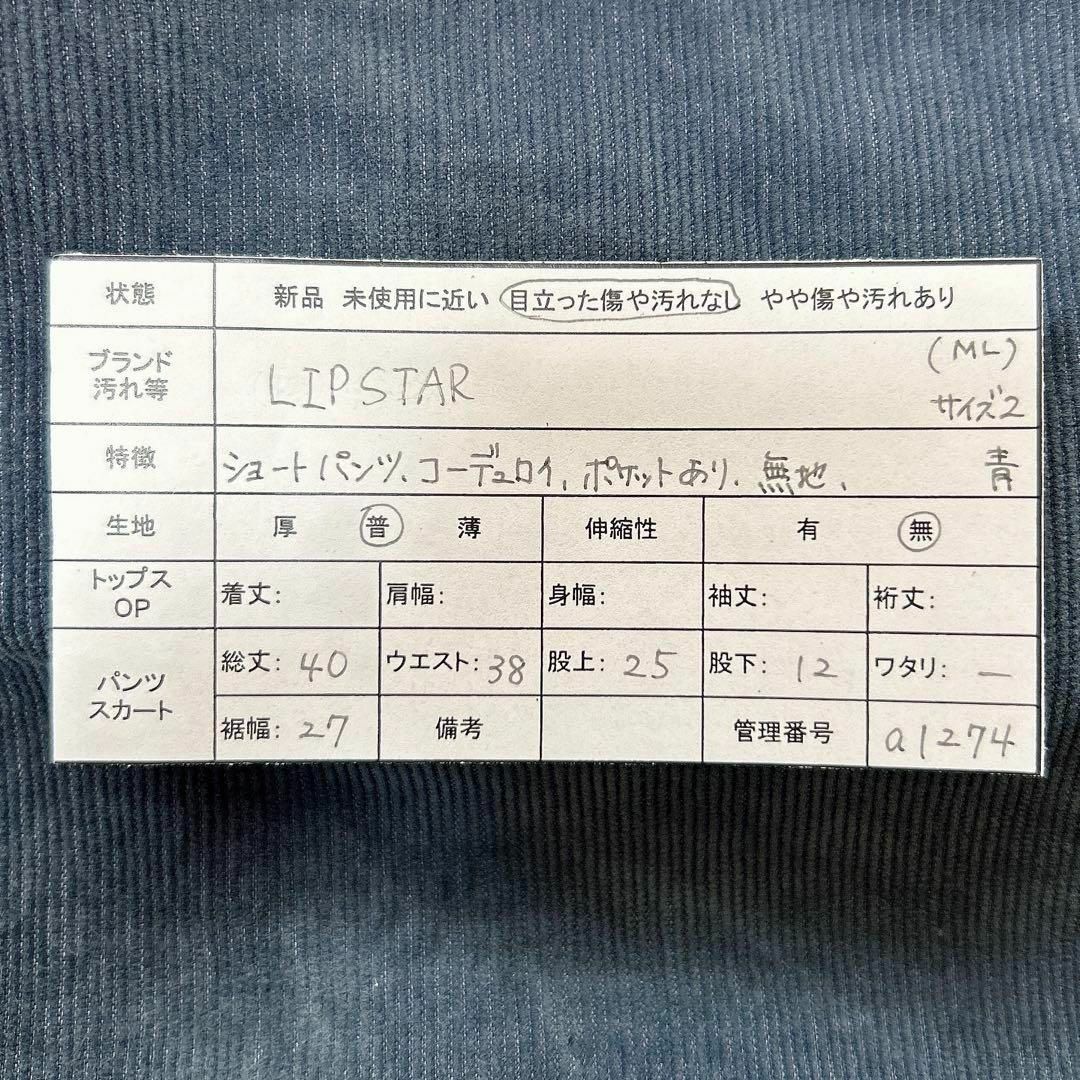 状態 新品 未使用に近い 目立った傷や汚れなし やや傷や汚れあり
ブランド
汚れ等
LIPSTAR
(ML)
サイズ2
特徴 ショートパンツ、コーデュロイ、ポケットあり、無地、 青
生地 厚 普 薄 伸縮性 有 無
トップス
OP
着丈: 肩幅: 身幅: 袖丈: 裄丈:
パンツ
スカート
総丈: 40 ウエスト: 38 股上: 25 股下: 12 ワタリ: —
裾幅: 27 備考 管理番号 a1274